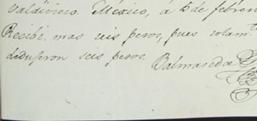 Valdivieso. México, á 5 de febrero
Recibí, mas seis pesos, pues solamte
dedugeron seis pesos. Balmaseda